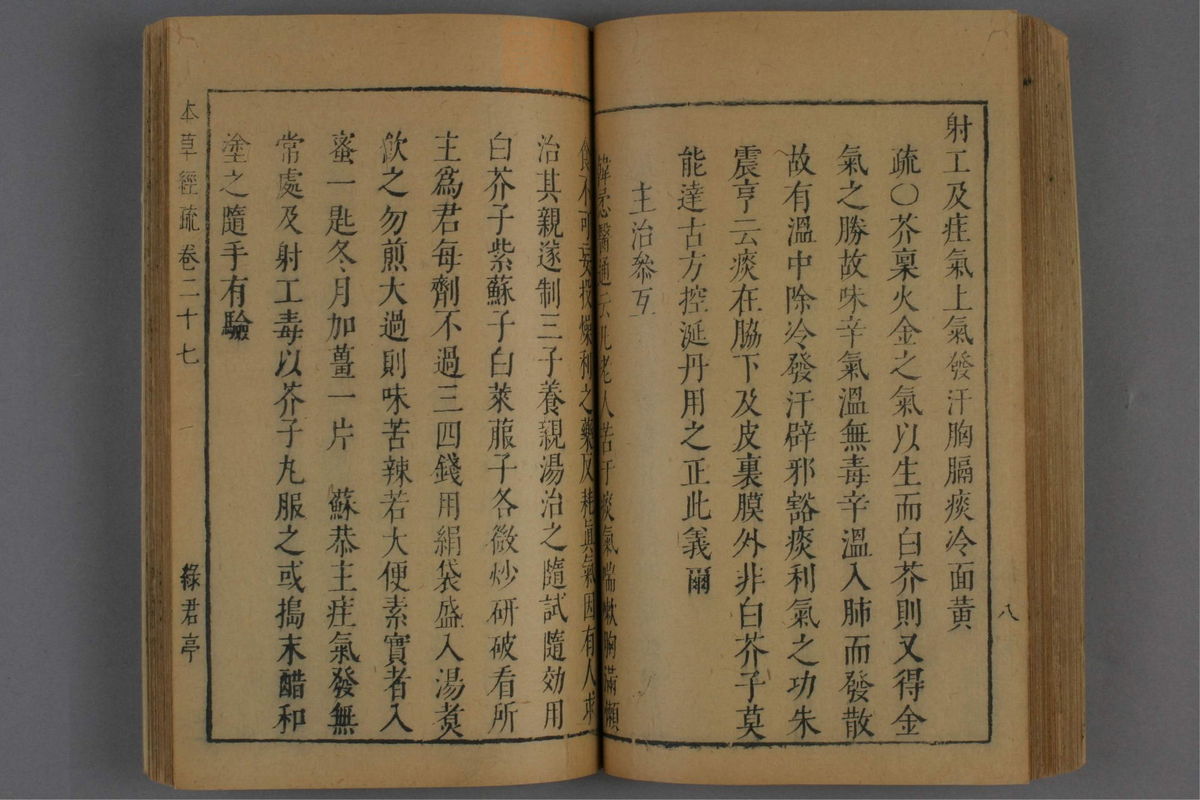 射工及疰氣上氣發汗胸膈痰冷面黃
疏○芥稟火金之氣以生而白芥則又得金
氣之勝故味辛氣溫無毒辛溫入肺而發散
故有溫中除冷發汗辟邪豁痰利氣之功朱
震亨云痰在脇下及皮裏膜外非白芥子莫
能達古方控涎丹用之正此義爾
主治叅互
韓𢘅醫通云凡老人苦于痰氣喘嗽胸滿懶
食不可妄投燥利之藥反耗眞氣因有人求
治其親遂制三子養親湯治之隨試隨効用
白芥子紫蘇子白萊菔子各微炒研破看所
主爲君每劑不過三四錢用絹袋盛入湯煑
飲之勿煎大過則味苦辣若大便素實者入
蜜一匙冬月加薑一片　蘇恭主疰氣發無
常處及射工毒以芥子丸服之或搗末醋和
塗之隨手有驗
八
本草經疏 卷二十七
綠君亭